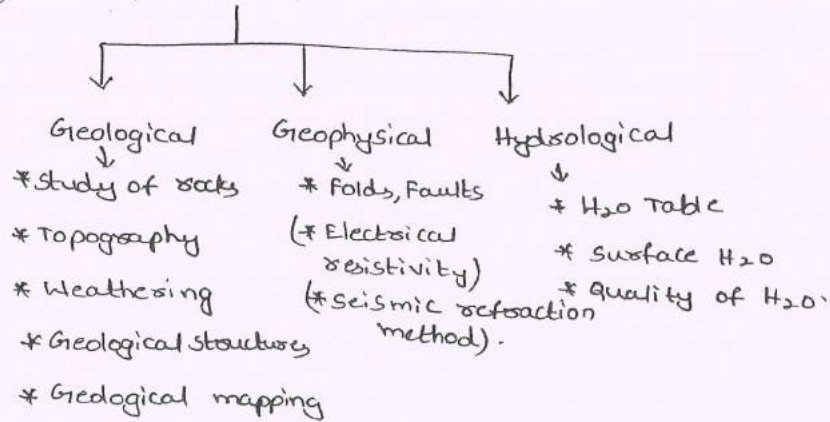 Geological
* Study of rocks
* Topography
* Weathering
* Geological structures
* Geological mapping
Geophysical
* Folds, Faults
(* Electrical
resistivity)
(* Seismic refraction
method).
Hydrological
* H₂O Table
* Surface H₂O
* Quality of H₂O.